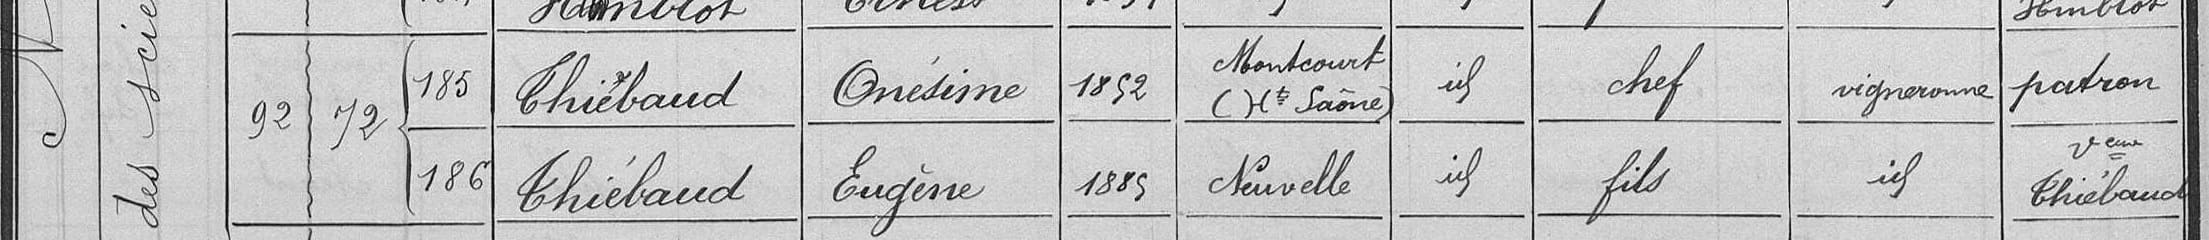 des scie
Humblot Hmblot
92 72 185 Thiébaud Onésime 1852 Montcourt (Hte Saône) id chef vigneronne patron
186 Thiébaud Eugène 1885 Neuvelle id fils id Veuve Thiébaud